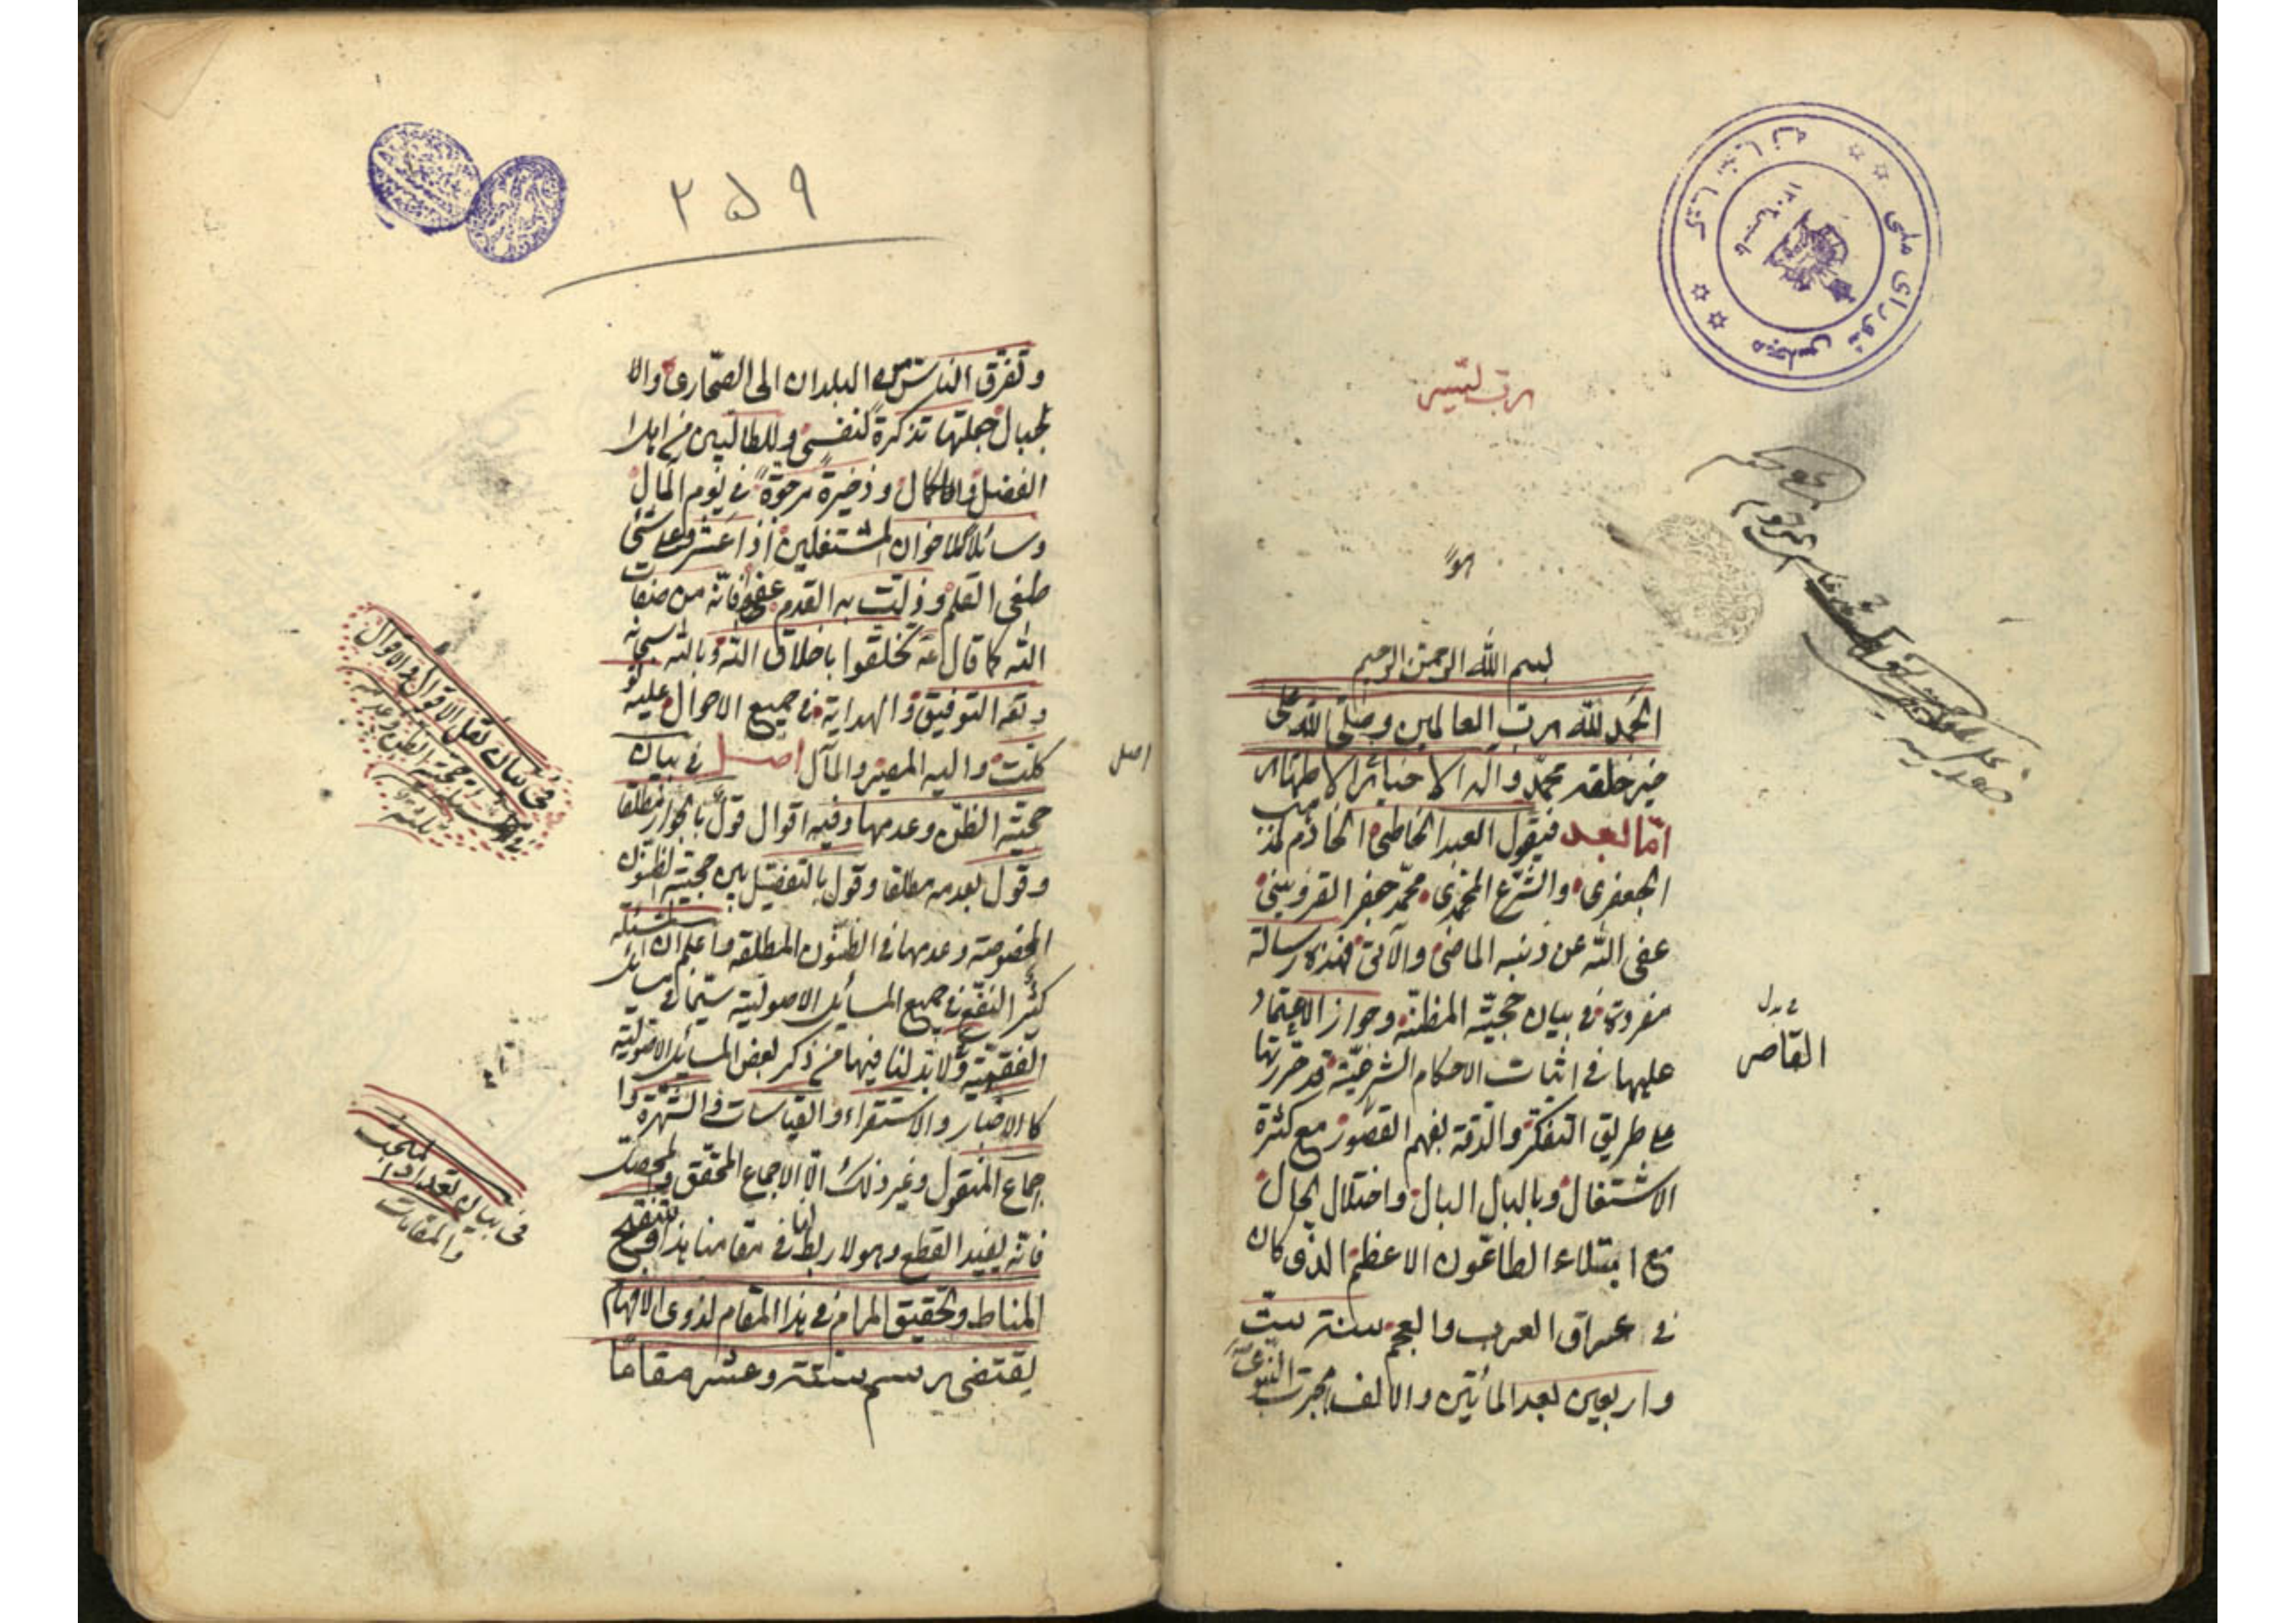 رب تمم
هو
بسم الله الرحمن الرحيم
الحمد لله رب العالمين وصلى الله على
خير خلقه محمد واله الاخيار الاطهار
امّا بعد فيقول العبد الخاطى الخادم لمذهب
الجعفرى والشرع المحمدى محمد جعفر القزوينى
عفى الله عن ذنبه الماضى والآتى فهذه رسالة
مفردة فى بيان حجية المظنة وجواز الاعتماد
عليها فى اثبات الاحكام الشرعية قد حررتها
على طريق التفكر والدقة بفهم القصور مع كثرة
الاشتغال وبالبال البال واختلال الحال
مع ابتلاء الطاعون الاعظم الذى كان
فى عراق العرب والعجم سنة ست
واربعين بعد المأتين والالف هجرت النبوية
فى بدل
القاصر
كتابخانه مجلس شوراى ملى
٢٥٩
وتفرق الناس من البلدان الى الصحارى والا
لجبال جعلتها تذكرة لنفسى وللطالبين من اهل
الفضل والكمال وذخيرة مرجوة فى يوم المآل
وسائلا للاخوان المشتغلين اذا عثروا على شئ
طغى القلم وزلت به القدم عفو فانه من صفات
الله كما قال تخلقوا باخلاق الله وبالله سبحانه
وثقه التوفيق والهداية فى جميع الاحوال عليه توكلت
واليه المصير والمآل اصل فى بيان
حجية الظن وعدمها وفيه اقوال قول بالجواز مطلقا
وقول بعدمه مطلقا وقول بالتفصيل بين حجية الظنون
المخصوصة وعدمها فى الظنون المطلقة واعلم ان المسئلة
كثير النفع فى جميع المسائل الاصولية سيما فى مسائل
الفقهية ولا بد لنا فيها من ذكر بعض المسائل الاصولية
كالاخبار والاستقراء والقياسات والشهرة والا
جماع المنقول وغير ذلك الا الاجماع المحقق والمحصل
فانه يفيد القطع وهو لا ربط لنا فى مقامنا هذا وتنقيح
المناط وتحقيق المرام فى هذا المقام لذوى الافهام
يقتضى رسم ستة وعشر مقاما
اصل
فى بيان نقل الاقوال والاقوال
حجية الظن وعدمه
فى بيان تعداد
والمقامات